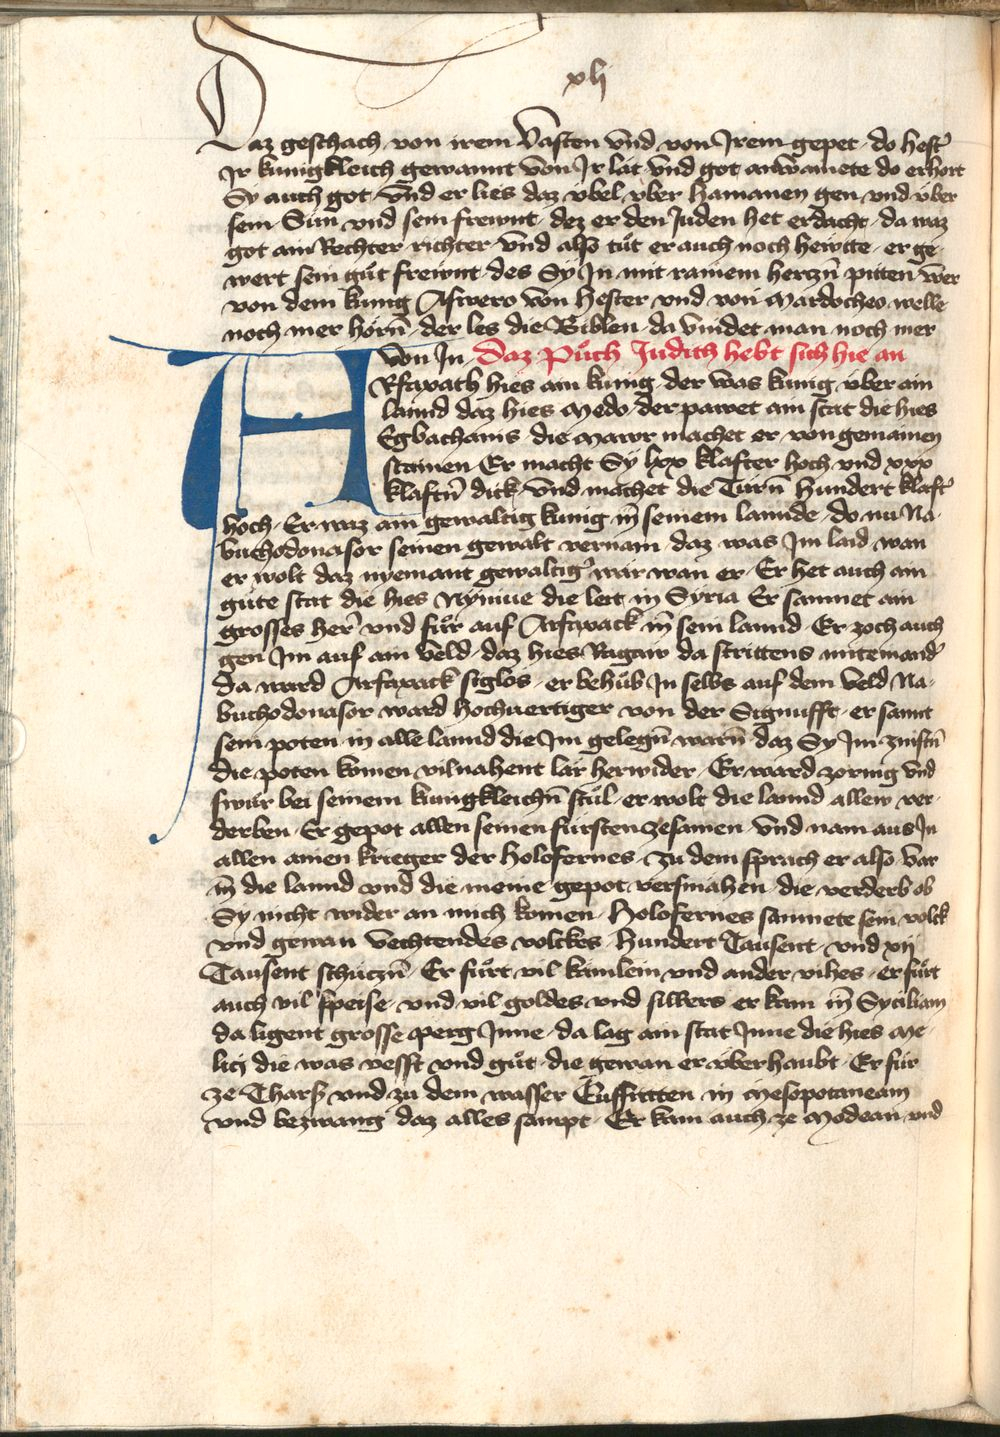 xlj
Daz geschach von irem Vasten vnd von Jrem gepet do hest'
Jr kunigkleich gewannt von Jr lat vnd got anrvͦamete do erhort
Sy auch got Vnd er lies daz vbel vber hamanen gen vnd vber
sein Sun vnd sein frewnt dez er den Juden het erdacht da waz
got ain Rechter richter vnd also tuͦt er auch noch hewtte er ge-
wert sein guͦt frewnt des Sy Jn mit rainem hertzn̄ pitten Wer
von dem kunig Aswero von Hester vnd von Mardocheo welle
noch mer hörn̄ der les die Biblen da Vindet man noch mer
Von Jn Daz Puͦch Judith hebt sich hie an
Arfaxath hies ain kunig der was kunig vber ain
lannd daz hies Medo der pawet ain stat die hies
Egbathanis die Mawr machet er von gemainen
stainen Er macht Sy lxx klafter hoch vnd xxx
klaftn̄ dick vnd machet die Türn̄ Hundert klaft'
hoch Er waz ain gewaltig kunig in̄ seinem lannde do nu Na-
buchodonasor seinen gewalt vernam daz was Jm laid wan
er wolt daz nyemant gewaltig' wär wan er Er het auch ain
guͦte stat die hies Nyniue die leit in Syria Er samnet ain
grosses her̄ vnd fuͦr auf Arfaxack in̄ sein lannd Er zoch auch
gen Jm auf ain Veld daz hies Ragaw da strittens miteinand'
da ward Arfaxack siglos er behuͦb Jn selbs auf dem Veld Na-
buchodonasor ward hochuertiger von der Signufft er sant
sein poten in alle lannd die Jm gelegn̄ warn̄ daz Sy Jm zinstn̄
die poten komen vil nahent lär herwider Er ward zornig vnd
swuͦr bei seinem kunigkleichn̄ stuͦl er wolt die lannd allew ver-
derben Er gepot allen seinen fürsten zesamen vnd nam aus Jn
allen ainen krieger der Holofernes zu dem sprach er also Var
in̄ die lannd vnd die meine gepot versmahen die verderb ob
Sy nicht wider an mich komen Holofernes samnete sein volck
vnd gewan Vechtendes volckes Hundert Tausent vnd xij
Tausent schüczn̄ Er fuͦrt vil kämlein vnd ander vihes er fuͦrt
auch vil speise vnd vil goldes vnd silbers er kam in̄ Syciliam
da ligent grosse perg Jnne da lag ain stat Jnne die hies Me-
lici die was vesst vnd guͦt die gewan er vberhaubt Er fuͦr
ze Thars vnd zu dem wasser Euffratten in Mesopotaneam
vnd bezwang daz alles sampt Er kam auch ze Modean vnd